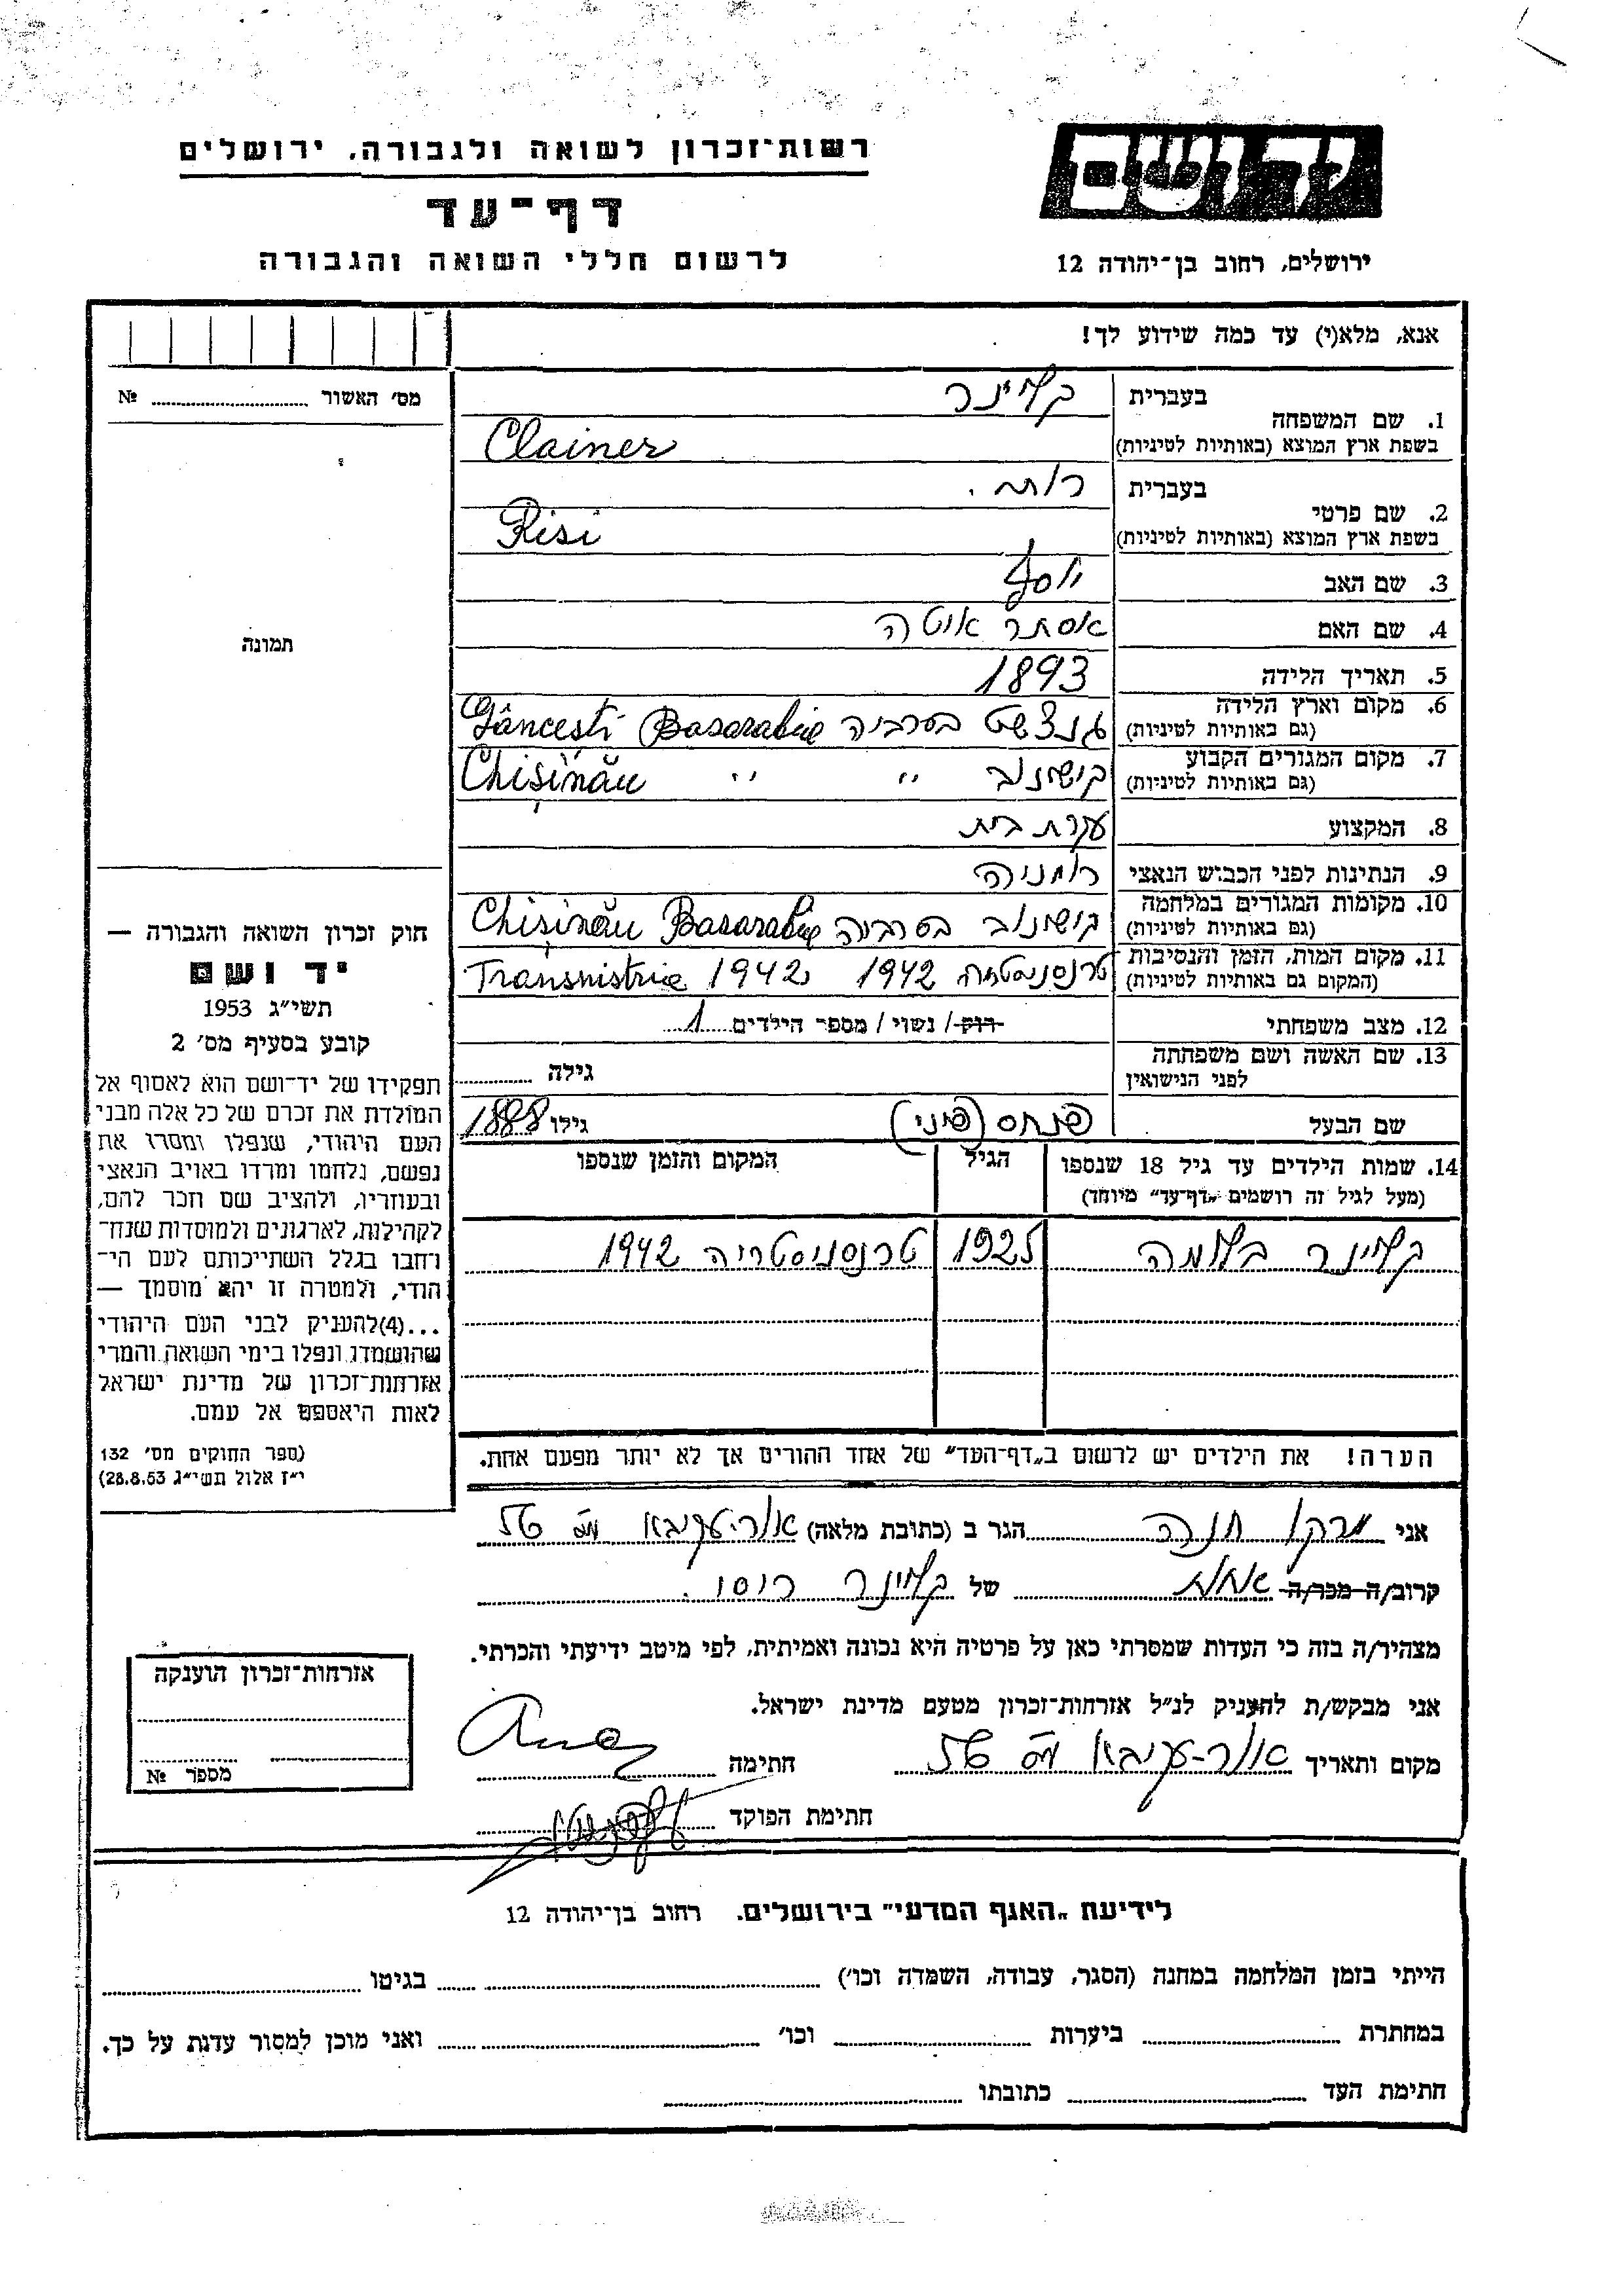 רשות־זכרון לשואה ולגבורה, ירושלים
דף־עד
לרשום חללי השואה והגבורה
יד ושם
ירושלים, רחוב בן־יהודה 12
אנא, מלא(י) עד כמה שידוע לך!
מס׳ האשור № ..........
תמונה
חוק זכרון השואה והגבורה —
יד ושם
תשי״ג 1953
קובע בסעיף מס׳ 2
תפקידו של יד־ושם הוא לאסוף אל
המולדת את זכרם של כל אלה מבני
העם היהודי, שנפלו ומסרו את
נפשם, נלחמו ומרדו באויב הנאצי
ובעוזריו, ולהציב שם וזכר להם,
לקהילות, לארגונים ולמוסדות שנח־
רחבו בגלל השתייכותם לעם הי־
הודי, ולמטרה זו יהא מוסמך —
...(4)להעניק לבני העם היהודי
שהושמדו ונפלו בימי השואה והמרי
אזרחות־זכרון של מדינת ישראל
לאות היאספם אל עמם.
(ספר החוקים מס׳ 132
י״ז אלול תשי״ג 28.8.53)
1. שם המשפחה
בעברית קליינר
בשפת ארץ המוצא (באותיות לטיניות) Clainer
2. שם פרטי
בעברית רות.
בשפת ארץ המוצא (באותיות לטיניות) Risi
3. שם האב יוסף
4. שם האם אסתר אוטה
5. תאריך הלידה 1893
6. מקום וארץ הלידה
(גם באותיות לטיניות) גנצשט בסרביה Gâncesti Basarabie
7. מקום המגורים הקבוע
(גם באותיות לטיניות) קישינוב ״ ״ Chișinău
8. המקצוע עקרת בית
9. הנתינות לפני הכבוש הנאצי רומניה
10. מקומות המגורים במלחמה
(גם באותיות לטיניות) קישינוב בסרביה Chișinău Basarabie
11. מקום המות, הזמן והנסיבות
(המקום גם באותיות לטיניות) טרנסניסטריה 1942 Transnistrie 1942
12. מצב משפחתי רוק / נשוי / מספר הילדים 1
13. שם האשה ושם משפחתה
לפני הנישואין גילה
שם הבעל פנחס (פיני) גילו 1888
14. שמות הילדים עד גיל 18 שנספו הגיל המקום והזמן שנספו
(מעל לגיל זה רושמים „דף־עד״ מיוחד)
קליינר בלומה 1925 טרנסניסטריה 1942
הערה! את הילדים יש לרשום ב„דף־העד״ של אחד ההורים אך לא יותר מפעם אחת.
אני מרקו חנה הגר ב (כתובת מלאה) אור־עקיבא
קרוב/ה מכר/ה אחות של קליינר ריסי.
מצהיר/ה בזה כי העדות שמסרתי כאן על פרטיה היא נכונה ואמיתית, לפי מיטב ידיעתי והכרתי.
אני מבקש/ת להעניק לנ״ל אזרחות־זכרון מטעם מדינת ישראל.
מקום ותאריך אור־עקיבא חתימה
חתימת הפוקד
אזרחות־זכרון הוענקה
מספר №
לידיעת „האגף המדעי״ בירושלים. רחוב בן־יהודה 12
הייתי בזמן המלחמה במחנה (הסגר, עבודה, השמדה וכו׳) .......... בגיטו ..........
במחתרת .......... ביערות .......... וכו׳ .......... ואני מוכן למסור עדות על כך.
חתימת העד .......... כתובתו ..........